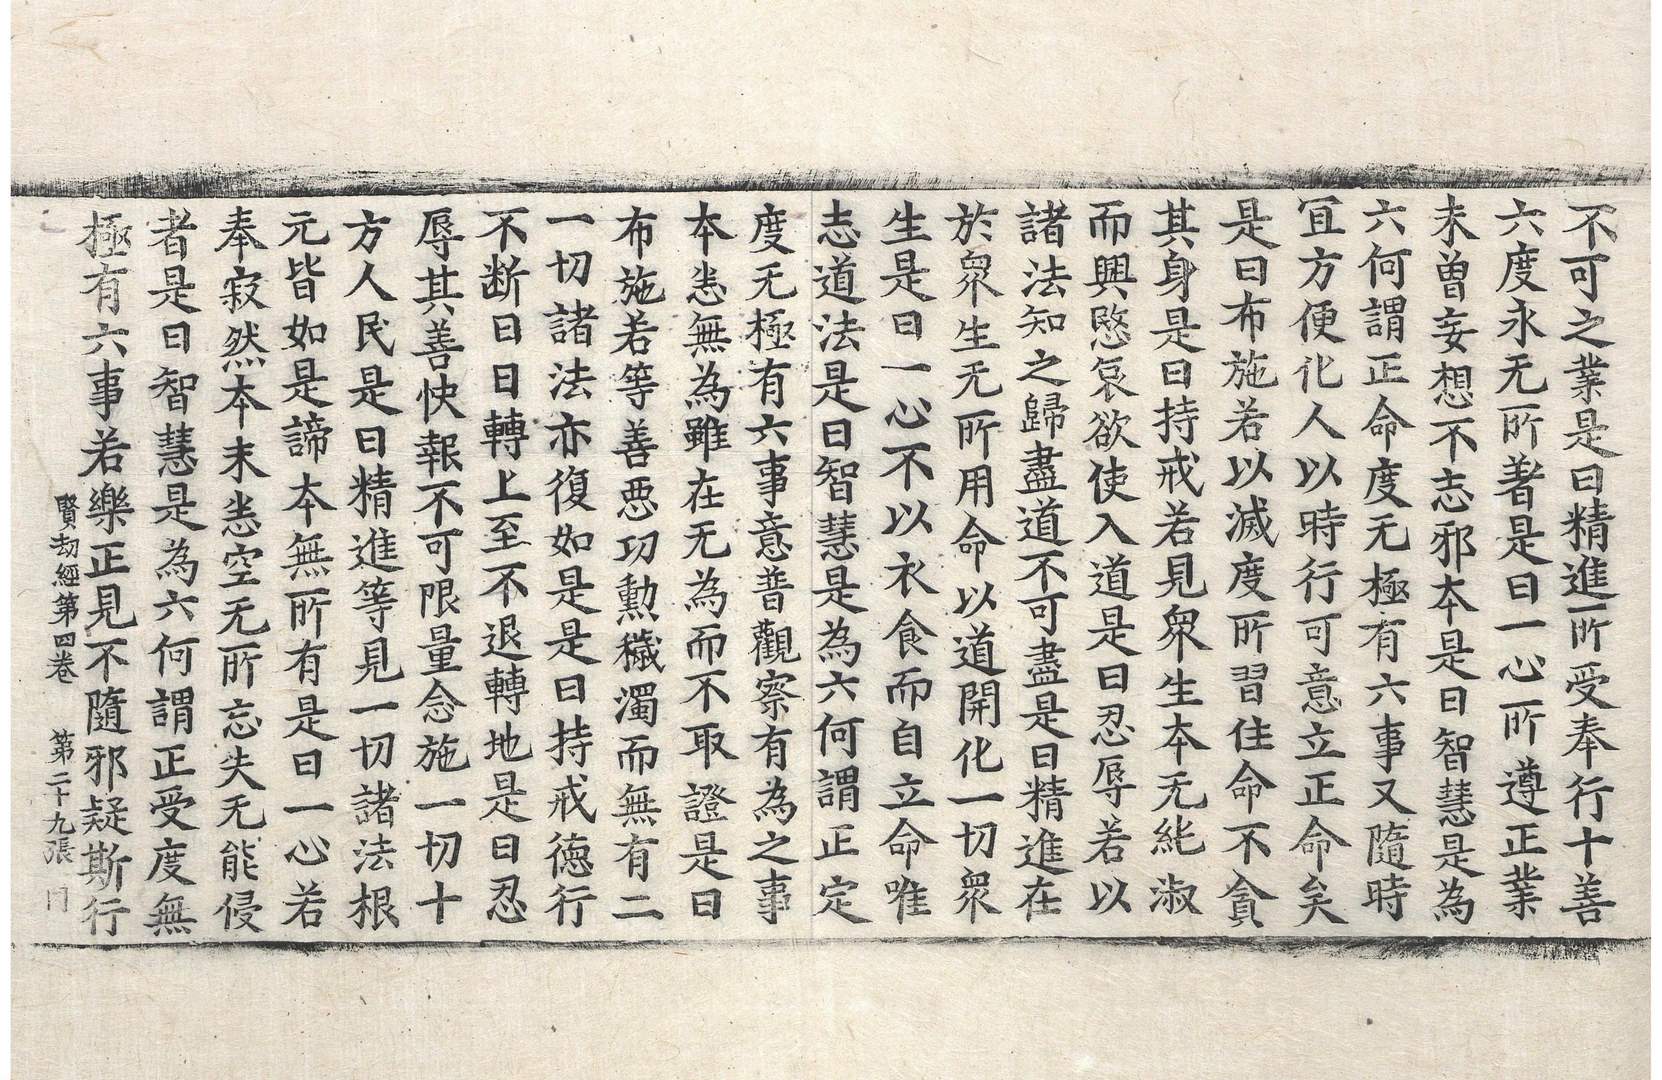 不可之業是曰精進所受奉行十善
六度永无所著是曰一心所遵正業
未曾妄想不志邪本是曰智慧是為
六何謂正命度无極有六事又隨時
冝方便化人以時行可意立正命矣
是曰布施若以滅度所習住命不貪
其身是曰持戒若見衆生本无紕淑
而興愍哀欲使入道是曰忍辱若以
諸法知之歸盡道不可盡是曰精進在
於衆生无所用命以道開化一切衆
生是曰一心不以衣食而自立命唯
志道法是曰智慧是為六何謂正定
度无極有六事意普觀察有為之事
本悉無為雖在无為而不取證是曰
布施若等善惡功勳穢濁而無有二
一切諸法亦復如是是曰持戒德行
不断日日轉上至不退轉地是曰忍
辱其善快報不可限量念施一切十
方人民是曰精進等見一切諸法根
元皆如是諦本無所有是曰一心若
奉寂然本末悉空无所忘失无能侵
者是曰智慧是為六何謂正受度無
極有六事若樂正見不隨邪疑斯行
賢劫經第四卷　第二十九張